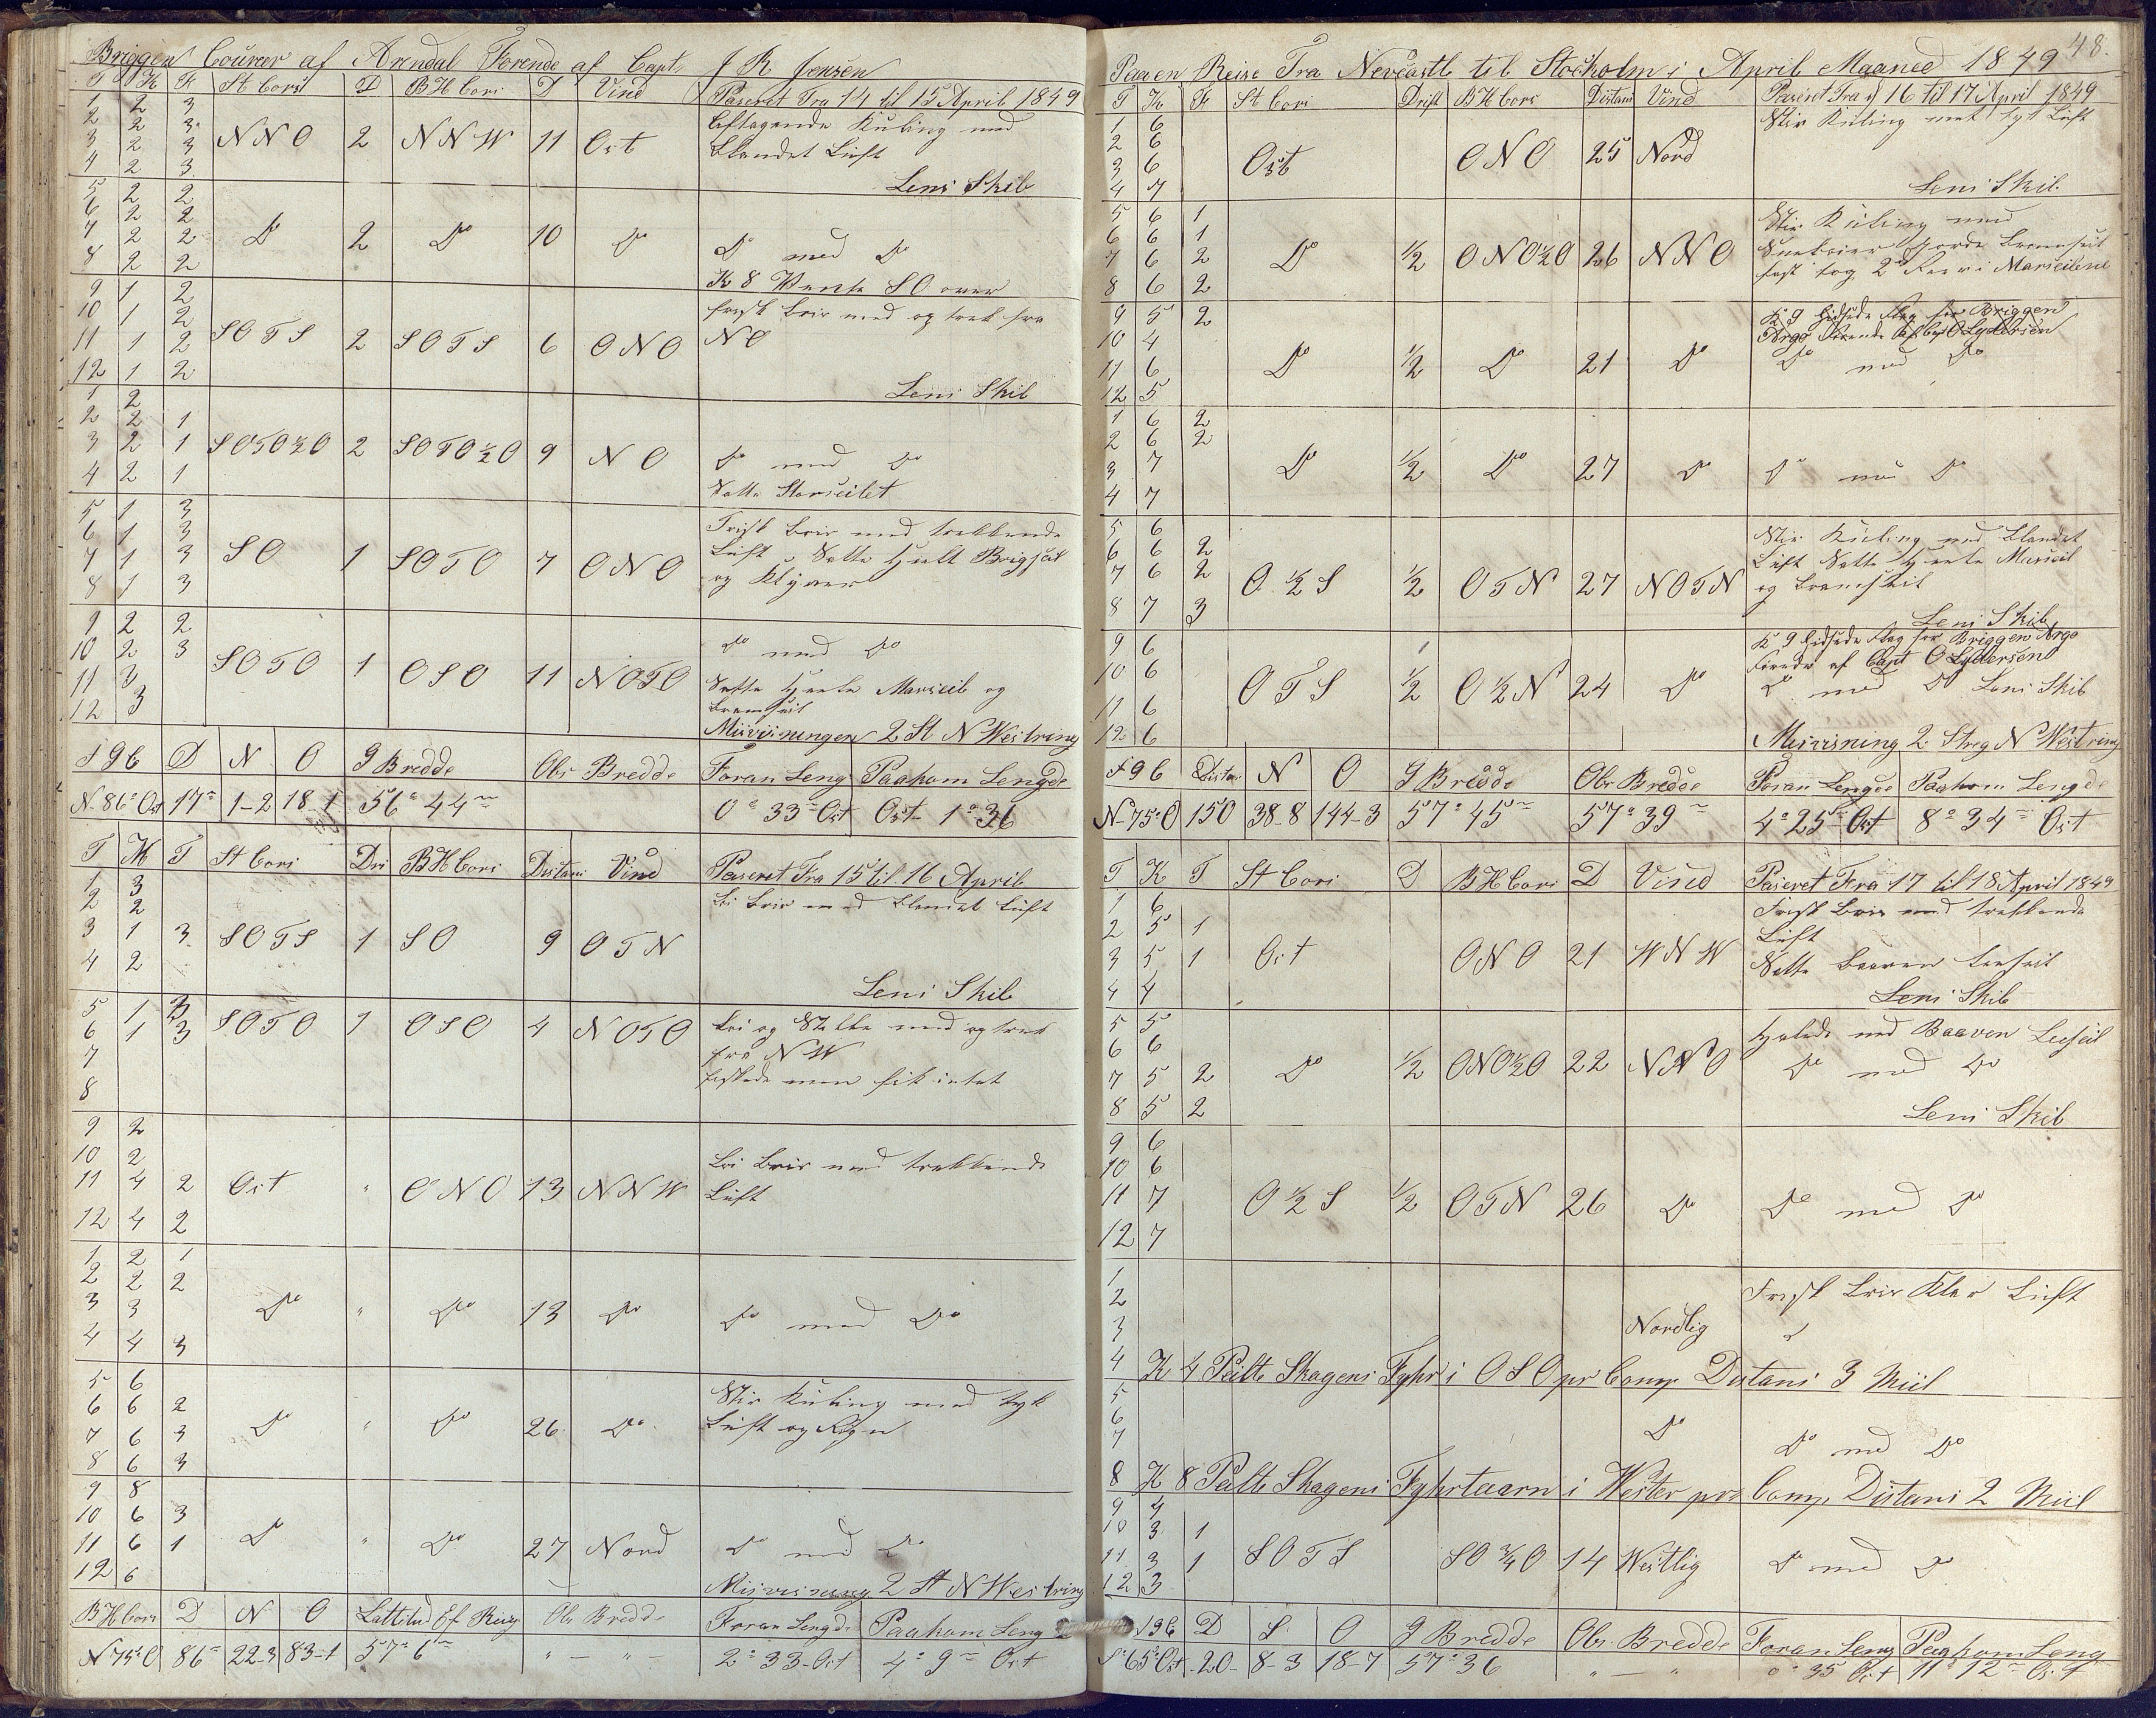 Briggen Courier af Arendal Førende af Capt. J R Jensen
T K F St Cors D BH Cors D Vind Paseret Fra 14 til 15 April 1849
1 2 3 Aftagende Kuling med
2 2 3
3 2 3 NNO 2 NNW 11 Ost Blandet Luft
4 2 3 Lens Skib
5 2 2
6 2 2
7 2 2 Do 2 Do 10 Do Do med Do
8 2 2 K 8 Vente SO over
9 1 2 frisk Bris med og trek fra
10 1 2
11 1 2 SOTS 2 SOTS 6 ONO NO
12 1 2 Lens Skib
1 2
2 2 1
3 2 1 SOTO½O 2 SOTO½O 9 NO Do med Do
4 2 1 Satte Storseilet
5 1 3 Frisk Bris med trekkende
6 1 3 Luft
7 1 3 SO 1 SOTO 7 ONO Satte Brigseil
8 1 3 og Klyver
9 2 2
10 2 3 SOTO 1 OSO 11 NOTO Do med Do
11 3 Satte Merseil og
12 3 Bramseil
Misvisningen 2 St N Westring
S 96 D N O G Bredde Obs Bredde Foran Leng Paakom Lengde
N 86° Ost 17 1-2 18-1 56° 44 0° 33 Ost Ost 1° 36
T K T St Cors Dri BH Cors Distans Vind Paseret Fra 15 til 16 April
1 3 Bris med Blandet Luft
2 2
3 1 3 SOTS 1 SO 9 OTN
4 2 Lens Skib
5 1 3
6 1 3 SOTO 1 OSO 4 NOTO og Stille med og trek
7 fra NW
8 fiskede men fik intet
9 2
10 2 Bris med trekkende
11 4 2 Ost " ONO 13 NNW Luft
12 4 2
1 2 1
2 2 2
3 3 Do " Do 13 Do Do med Do
4 4 3
5 6 Stiv Kuling med tyk
6 6 2 Luft og Regn
7 6 3 Do " Do 26 Do
8 6 3
9 8
10 6 3
11 6 1 Do " Do 27 Nord Do med Do
12 6 Misvisning 2 St N Westring
BH Cors D N O Lattitud Ef Reig Obs Bredde Foran Lengd Paakom Leng
N 75° O 86 22-3 83-1 57° 6 " — " — 2° 33 Ost 4° 9 Ost
48.
Paa en Reise Fra Nevcastle til Stockholm i April Maaned 1849
T K F St Cors Drift BH Cors Distans Vind Paseret Fra d 16 til 17 April 1849
1 6 Stiv Kuling met tyk Luft
2 6
3 6 Ost ONO 25 Nord
4 7 Lens Skib
5 6 1 Stiv Kuling med
6 6 1 Gjorde Bramseil
7 6 2 Do ½ ONO½O 26 NNO fast tog 2 Reev i Merseilene
8 6 2
9 5 2 K 9 hidsede Flag for Briggen
10 4 Argo Førende af Capt O Lydersen
11 6 Do ½ Do 21 Do Do med Do
12 5
1 6 2
2 6 2
3 7 Do ½ Do 27 Do Do med Do
4 7
5 6 Stiv Kuling med Blandet
6 6 2 Luft Satte Merseil
7 6 2 O ½ S ½ OTN 27 NOTN og Bramseil
8 7 3 Lens Skib
9 6 K 9 hidsede Flag for Briggen Argo
10 6 Førende af Capt O Lydersen
11 6 OTS ½ O ½ N 24 Do Do med Do Lens Skib
12 6 Misvisning 2 Streg N Westring
S 96 Distans N O G Bredde Obs Bredde Foran Lengde Paakom Lengde
N 75° O 150 38-8 144-3 57° 45 57° 39 4° 25 Ost 8° 34 Ost
T K T St Cors D BH Cors D Vind Paseret Fra 17 til 18 April 1849
1 6 Frisk Bris med trekkende
2 5 1 Luft
3 5 1 Ost ONO 21 WNW Satte Boaven Leeseil
4 4 Lens Skib
5 5 Halede ned Boaven Leeseil
6 6
7 5 2 Do ½ ONO½O 22 NNO Do med Do
8 5 2 Lens Skib
9 6
10 6
11 7 O ½ S ½ OTN 26 Do Do med Do
12 7
1 Frisk Bris Klar Luft
2
3 Nordlig
4 K 4 Peilte Skagens Fyhr i OSO pr Comp. Distans 3 Miil
5
6 Do
7 Do med Do
8 K 8 Peilte Skagens Fyhrtaarn i Wester pr Comp. Distans 2 Miil
9 4
10 3 1
11 3 1 SOTS SO¾O 14 Westlig Do med Do
12 3
196 D S O G Bredde Obs. Bredde Foran Leng Paakom Leng
S 65° Ost 20 8-3 18-7 57° 36 " — " 0° 35 Ost 11° 12 Ost